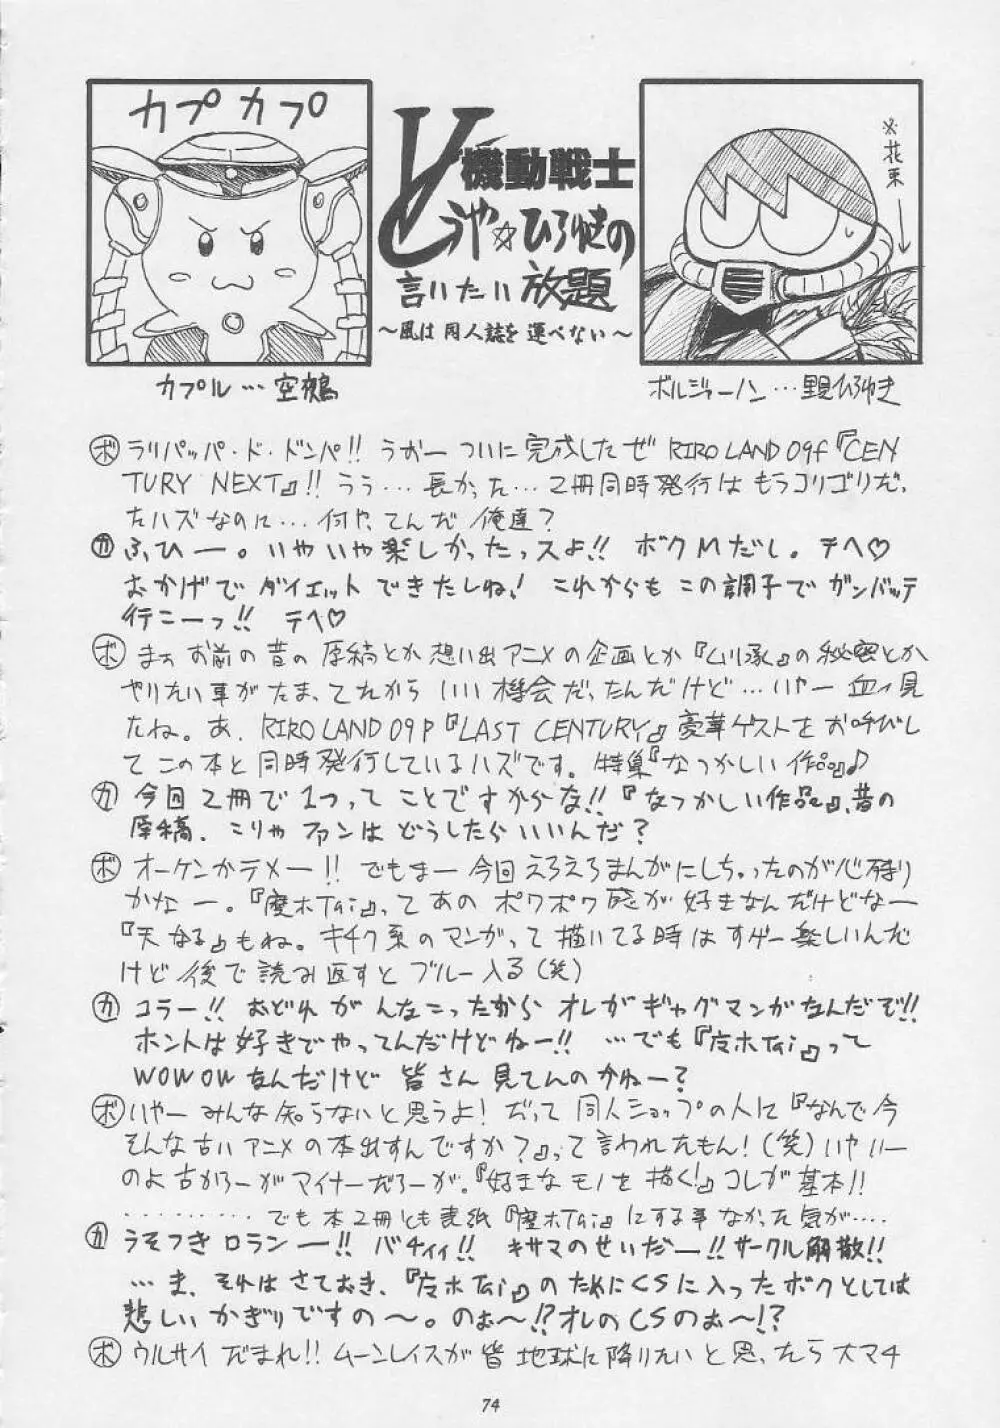 カプカプ
機動戦士
とうや☆ひろゆきの
言いたい放題
〜風は同人誌を運べない〜
※花束
カプル…空鶴
ボルジャーノン…里見ひろゆき
ボ ラリパッパ・ド・ドンパ!! うおーついに完成したぜ RIRO LAND 09f『CEN
TURY NEXT』!! うう…長かった…2冊同時発行はもうコリゴリだ、
たハズなのに…何やってんだ俺達?
カ ふひー。いやいや楽しかったっスよ!! ボクMだし。テヘ♡
おかげでダイエットできたしね! これからもこの調子でガンバッテ
行こーっ!! テヘ♡
ボ まあお前の昔の原稿とか想い出アニメの企画とか『』の秘密とか
やりたい事がたまってたからいい機会だったんだけど…いやー血ィ見
たね。あ、RIRO LAND 09P『LAST CENTURY』豪華ゲストをお呼びし
てこの本と同時発行しているハズです。特集『なつかしい作品』♪
カ 今回2冊で1つってことですからな!!『なつかしい作品』、昔の
原稿、こりゃファンはどうしたらいいんだ?
ボ オーケンかテメー!! でもまー今回えろえろまんがにしちゃったのが心残り
かなー。『魔ホTai』ってあのポワポワ感が好きなんだけどなー
『天なる』もね。キチク系のマンガって描いてる時はすげー楽しいんだ
けど後で読み返すとブルー入る(笑)
カ コラー!! おどれがんなこったからオレがギャグマンガなんだぞ!!
ホントは好きでやってんだけどねー!! …でも『魔ホTai』って
WOWOWなんだけど皆さん見てんのかねー?
ボ いやーみんな知らないと思うよ! だって同人ショップの人に『なんで今
そんな古いアニメの本出すんですか?』って言われたもん!(笑)いやいー
のよ古かろーがマイナーだろーが。『好きなモノを描く!』コレが基本!!
………でも本2冊とも表紙『魔ホTai』にする事なかった気が….
カ うそつきロランー!! バチィィ!! キサマのせいだー!! サークル解散!!
…ま、それはさておき、『魔ホTai』のためにCSに入ったボクとしては
悲しいかぎりですの〜。のぉ〜!? オレのCSのぉ〜!?
ボ ウルサイだまれ!! ムーンレイスが皆地球に降りたいと思ったら大マチ
74